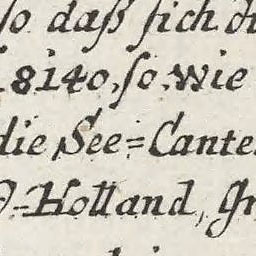 so daß sich
8140, so wie
die See=Cante
-Holland,